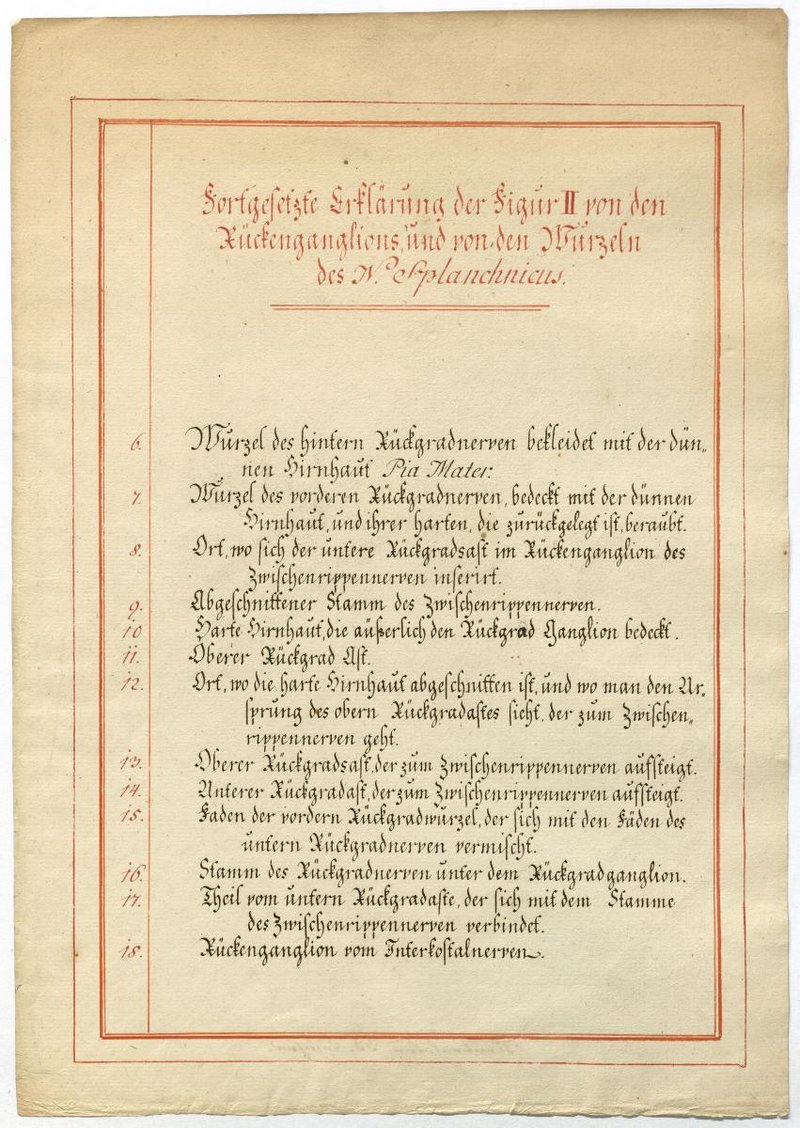 Fortgesetzte Erklärung der Figur II von den
Rückenganglions, und von den Wurzeln
des N.º Splanchnicus.
6. Wurzel des hintern Rückgradnerven bekleidet mit der dün„
nen Hirnhaut Pia Mater.
7. Wurzel des vorderen Rückgradnerven, bedeckt mit der dünnen
Hirnhaut, und ihrer harten, die zurückgelegt ist, beraubt.
8. Ort, wo sich der untere Rückgradsast im Rückenganglion des
Zwischenrippennerven inserirt.
9. Abgeschnittener Stamm des Zwischenrippennerven.
10 Harte Hirnhaut, die äußerlich den Rückgrad Ganglion bedeckt.
11. Oberer Rückgrad Ast.
12. Ort, wo die harte Hirnhaut abgeschnitten ist, und wo man den Ur„
sprung des obern Rückgradastes sieht, der zum Zwischen„
rippennerven geht.
13. Oberer Rückgradsast, der zum Zwischenrippennerven aufsteigt.
14. Unterer Rückgradast, der zum Zwischenrippennerven aufsteigt.
15. Faden der vordern Rückgradwurzel, der sich mit den Fäden des
untern Rückgradnerven vermischt.
16. Stamm des Rückgradnerven unter dem Rückgradganglion.
17. Theil vom untern Rückgradaste, der sich mit dem Stamme
des Zwischenrippennerven verbindet.
18. Rückenganglion vom Interkostalnerven.